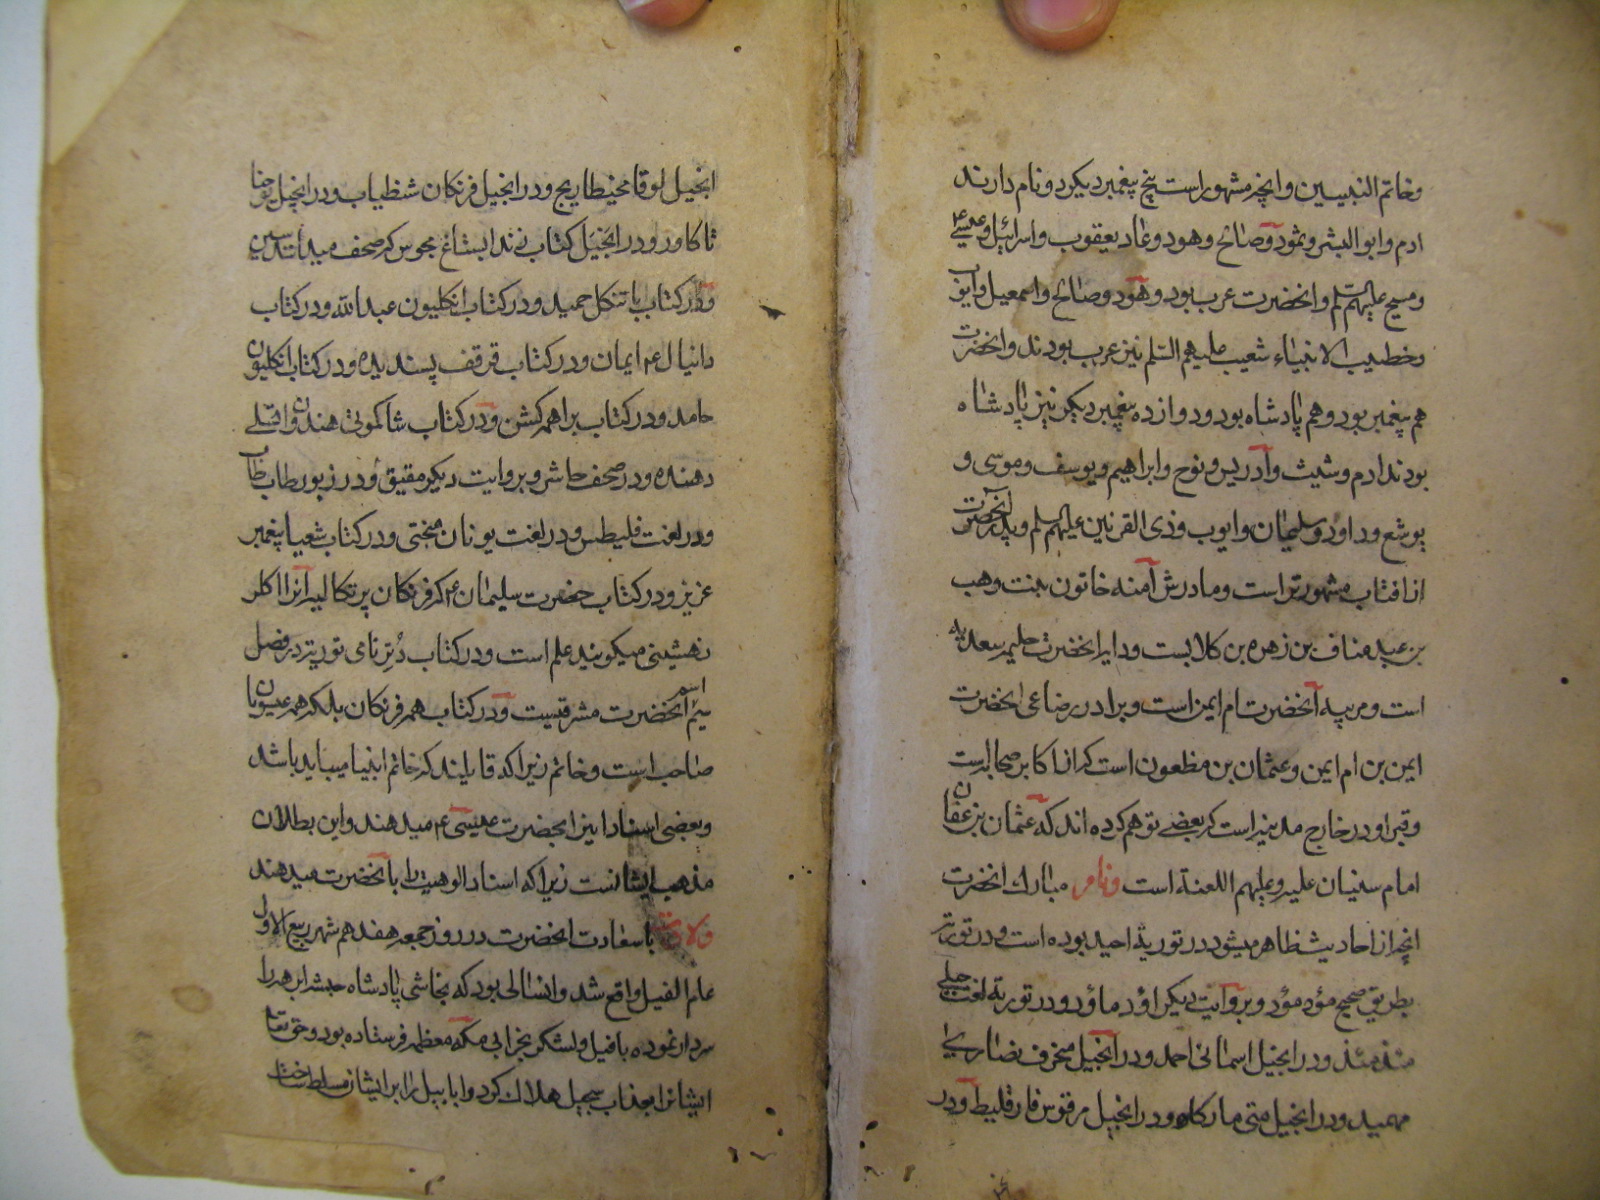 وخاتم النبیین وانچه مشهور است پنج پیغمبر دیکر دو نام دارند
ادم وابو البشر وثمود وصالح وهود وعاد یعقوب واسرائیل وعیسی
ومسیح علیهم السلم وانحضرت عرب بود وهود وصالح واسمعیل وایوب
وخطیب الانبیاء شعیب علیهم السلم نیز عرب بودند وانحضرت
هم پیغمبر بود وهم پادشاه بود ودوازده پیغمبر دیکر نیز پادشاه
بودند ادم وشیث وآدریس ونوح وابراهیم ویوسف وموسی و
یوشع وداود وسلیمان وایوب وذی القرنین علیهم السلم وپدر آنحضرت
از افتاب مشهورتر است ومادرش آمنه خاتون بنت وهب
بن عبد مناف بن زهره بن کلابست ودایه انحضرت حلیمه سعدیه
است ومربیه آنحضرت ام ایمن است وبرادر رضاعی انحضرت
ایمن بن ام ایمن وعثمان بن مظعون است که از اکابر صحابه است
وقبر او در خارج مدینه است که بعضی توهم کرده اند که عثمان بن عفان
امام سنیان علیه وعلیهم اللعنة است ونام مبارک انحضرت
انچه از احادیث ظاهر میشود در توریة احید بوده است ودر توریة
بطریق صحیح مؤد مؤد وبروایت دیکر اؤد ماؤد ودر توریة لغت
منذ منذ ودر انجیل اسمانی احمد ودر آنجیل محرف نصاری
مهمید ودر انجیل متی مارکاه ودر انجیل مرقوس فارقلیط ودر
انجیل لوقا ودر انجیل فرنکان شظیاب ودر انجیل یوحنا
تاکاور ودر انجیل کتاب مجوس که صحف میدانند
ودر کتاب حمید ودر کتاب انکلیون عبد الله ودر کتاب
دانیال ع ایمان ودر کتاب قرقف پسندیده ودر کتاب انکلیون
حامد ودر کتاب براهمه کشن ودر کتاب شاکمونی هندوان
دهنده ودر صحف حاشر وبروایت دیکر مقیق ودر زبور طاب طاب
ودر لغت فلیطس ودر لغت یونان منحتی ودر کتاب شعیا پیغمبر
عزیز ودر کتاب حضرت سلیمان ع که فرنکان پرتکالیه آنرا اکلر
میکویند علم است ودر کتاب نامی توریة در فصل
اسم آنحضرت ودر کتاب همه فرنکان بلکه همه عیسویان
صاحب است وخاتم زیرا که قایلند که خاتم انبیا میباید باشد
وبعضی اسناد این انحضرت عیسی ع میدهند واین بطلان
مذهب ایشانست زیرا که اسناد الوهیت را بآنحضرت میدهند
ولادت باسعادت انحضرت در روز جمعه هفدهم شهر ربیع الاول
عام الفیل واقع شد وانسالی بود که نجاشی پادشاه حبشه ابرهه را
سردار نموده بافیل ولشکر بخرابی مکه معظمه فرستاده بود وحق تعالی
ایشانرا بعذاب سجیل هلاک کرد وابابیل را برایشان مسلط ساخت